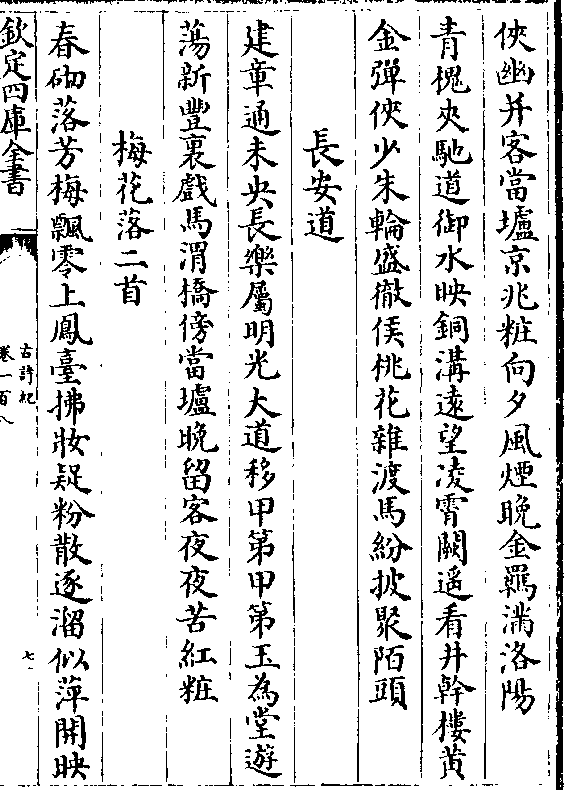 俠幽并客當壚京兆粧向夕風煙晚金羈滿洛陽
青槐夾馳道御水映銅溝遠望凌霄闕遙看井幹樓黄
金彈俠少朱輪盛徹侯桃花雜渡馬紛披聚陌頭
長安道
建章通未央長樂屬明光大道移甲第甲第玉為堂遊
蕩新豐裏戲馬渭橋傍當壚晚留客夜夜苦紅粧
梅花落二首
春砌落芳梅飄零上鳳臺拂妝疑粉散逐溜似萍開映
欽定四庫全書
古詩紀
卷一百八
七